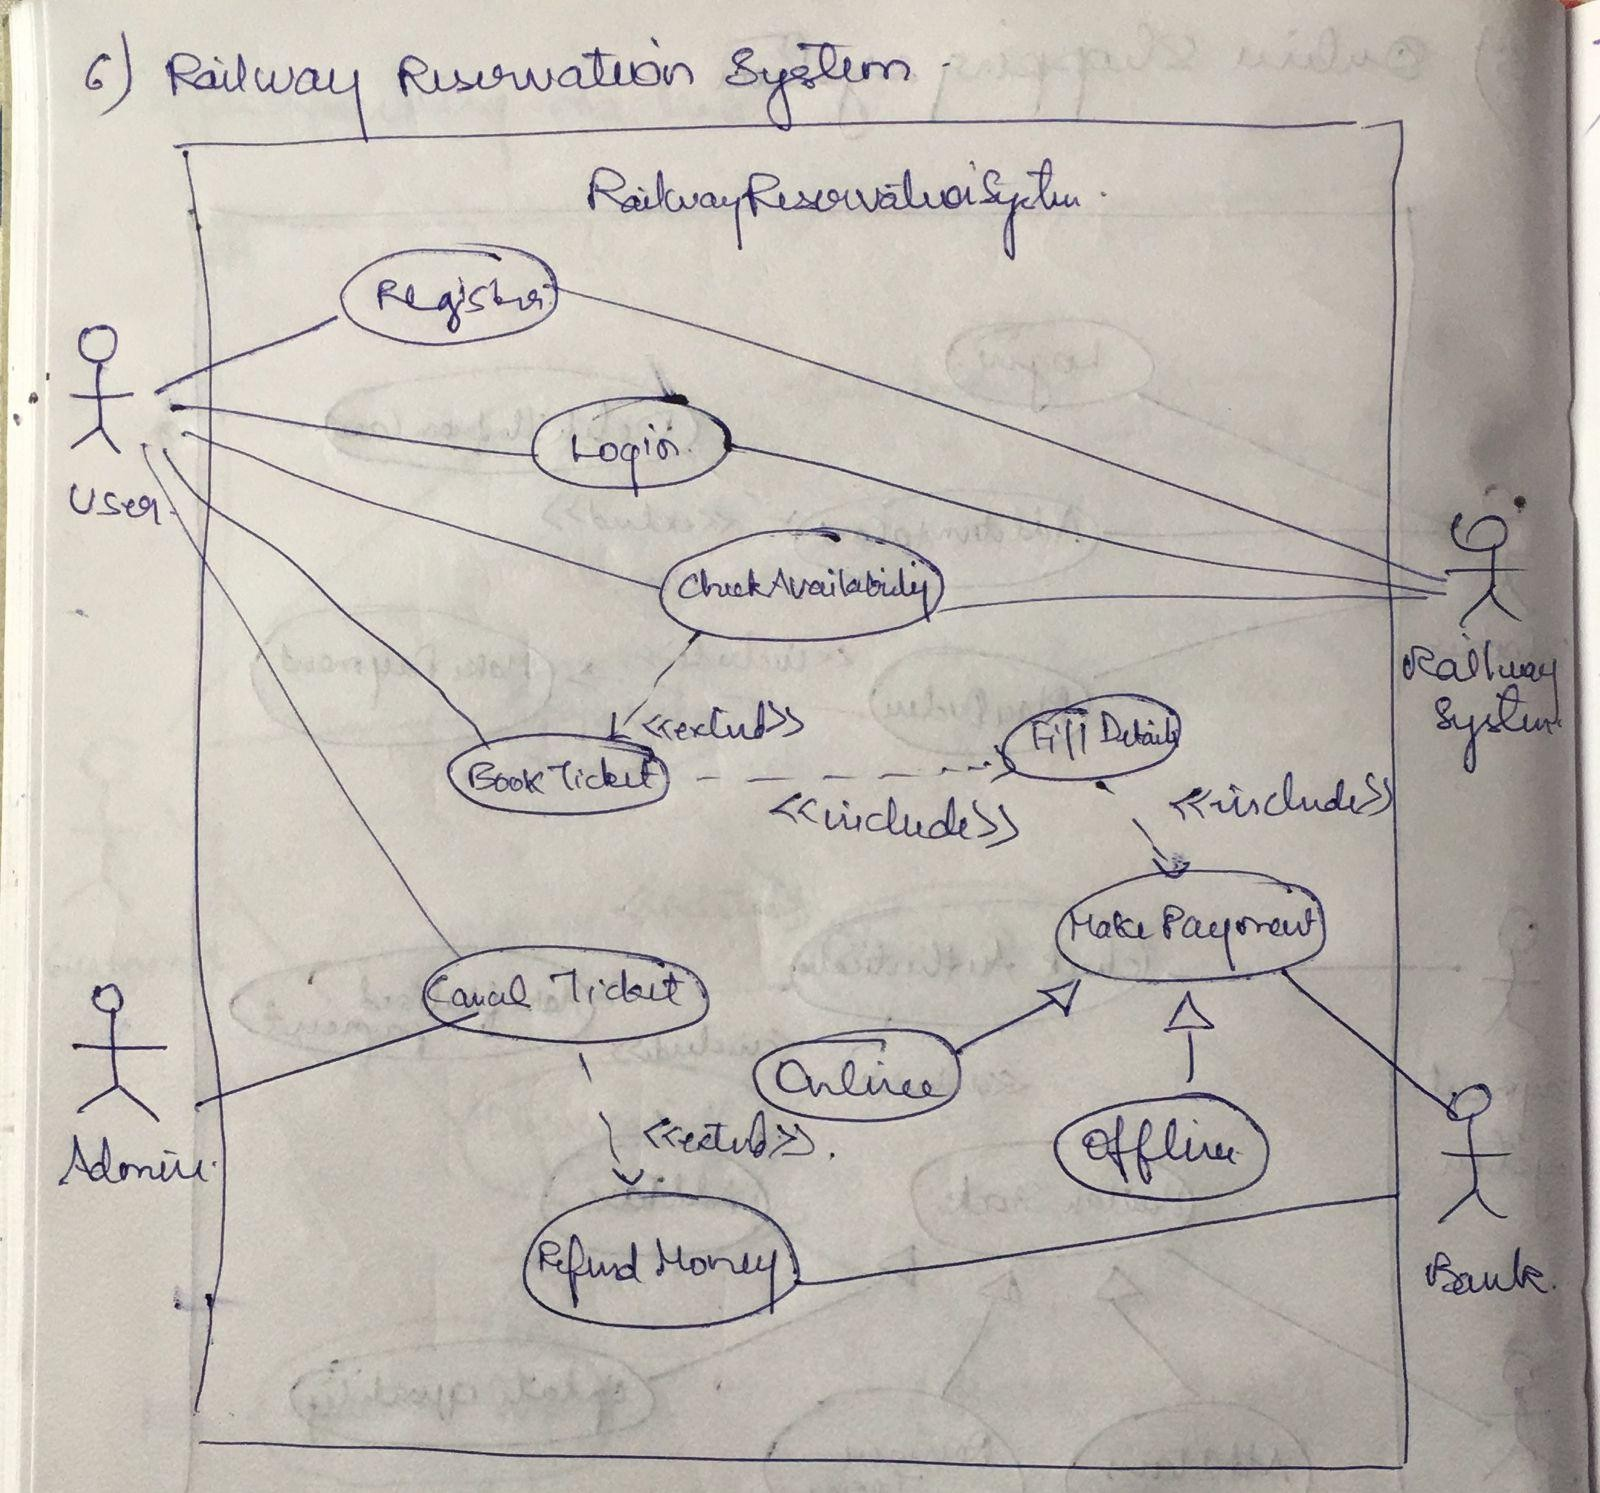 6) Railway Reservation System.
RailwayReservationSystem.
Register
Login
User.
CheckAvailability
Railway
System.
<<extend>>
Fill Details
Book Ticket
<<include>>
<<include>>
Make Payment
Cancel Ticket
Online
Offline
<<extend>>.
Admin.
Refund Money
Bank.